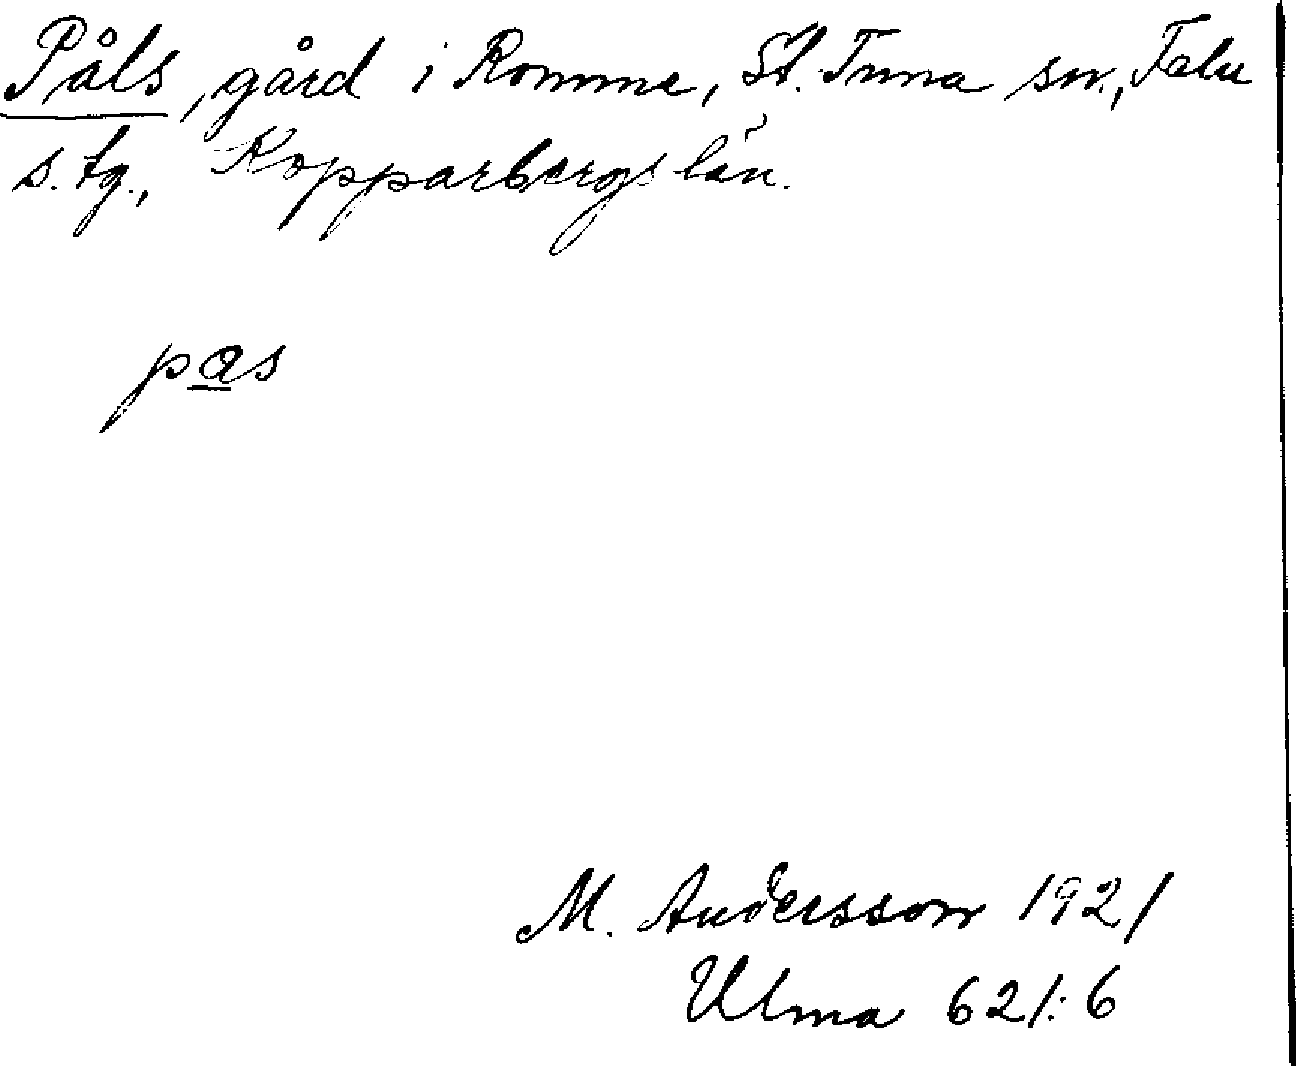 Påls, gård i Romme, St. Tuna sn., Falu
s. tg., Kopparbergs län.
pas
M. Andersson 1921
Ulma 621:6